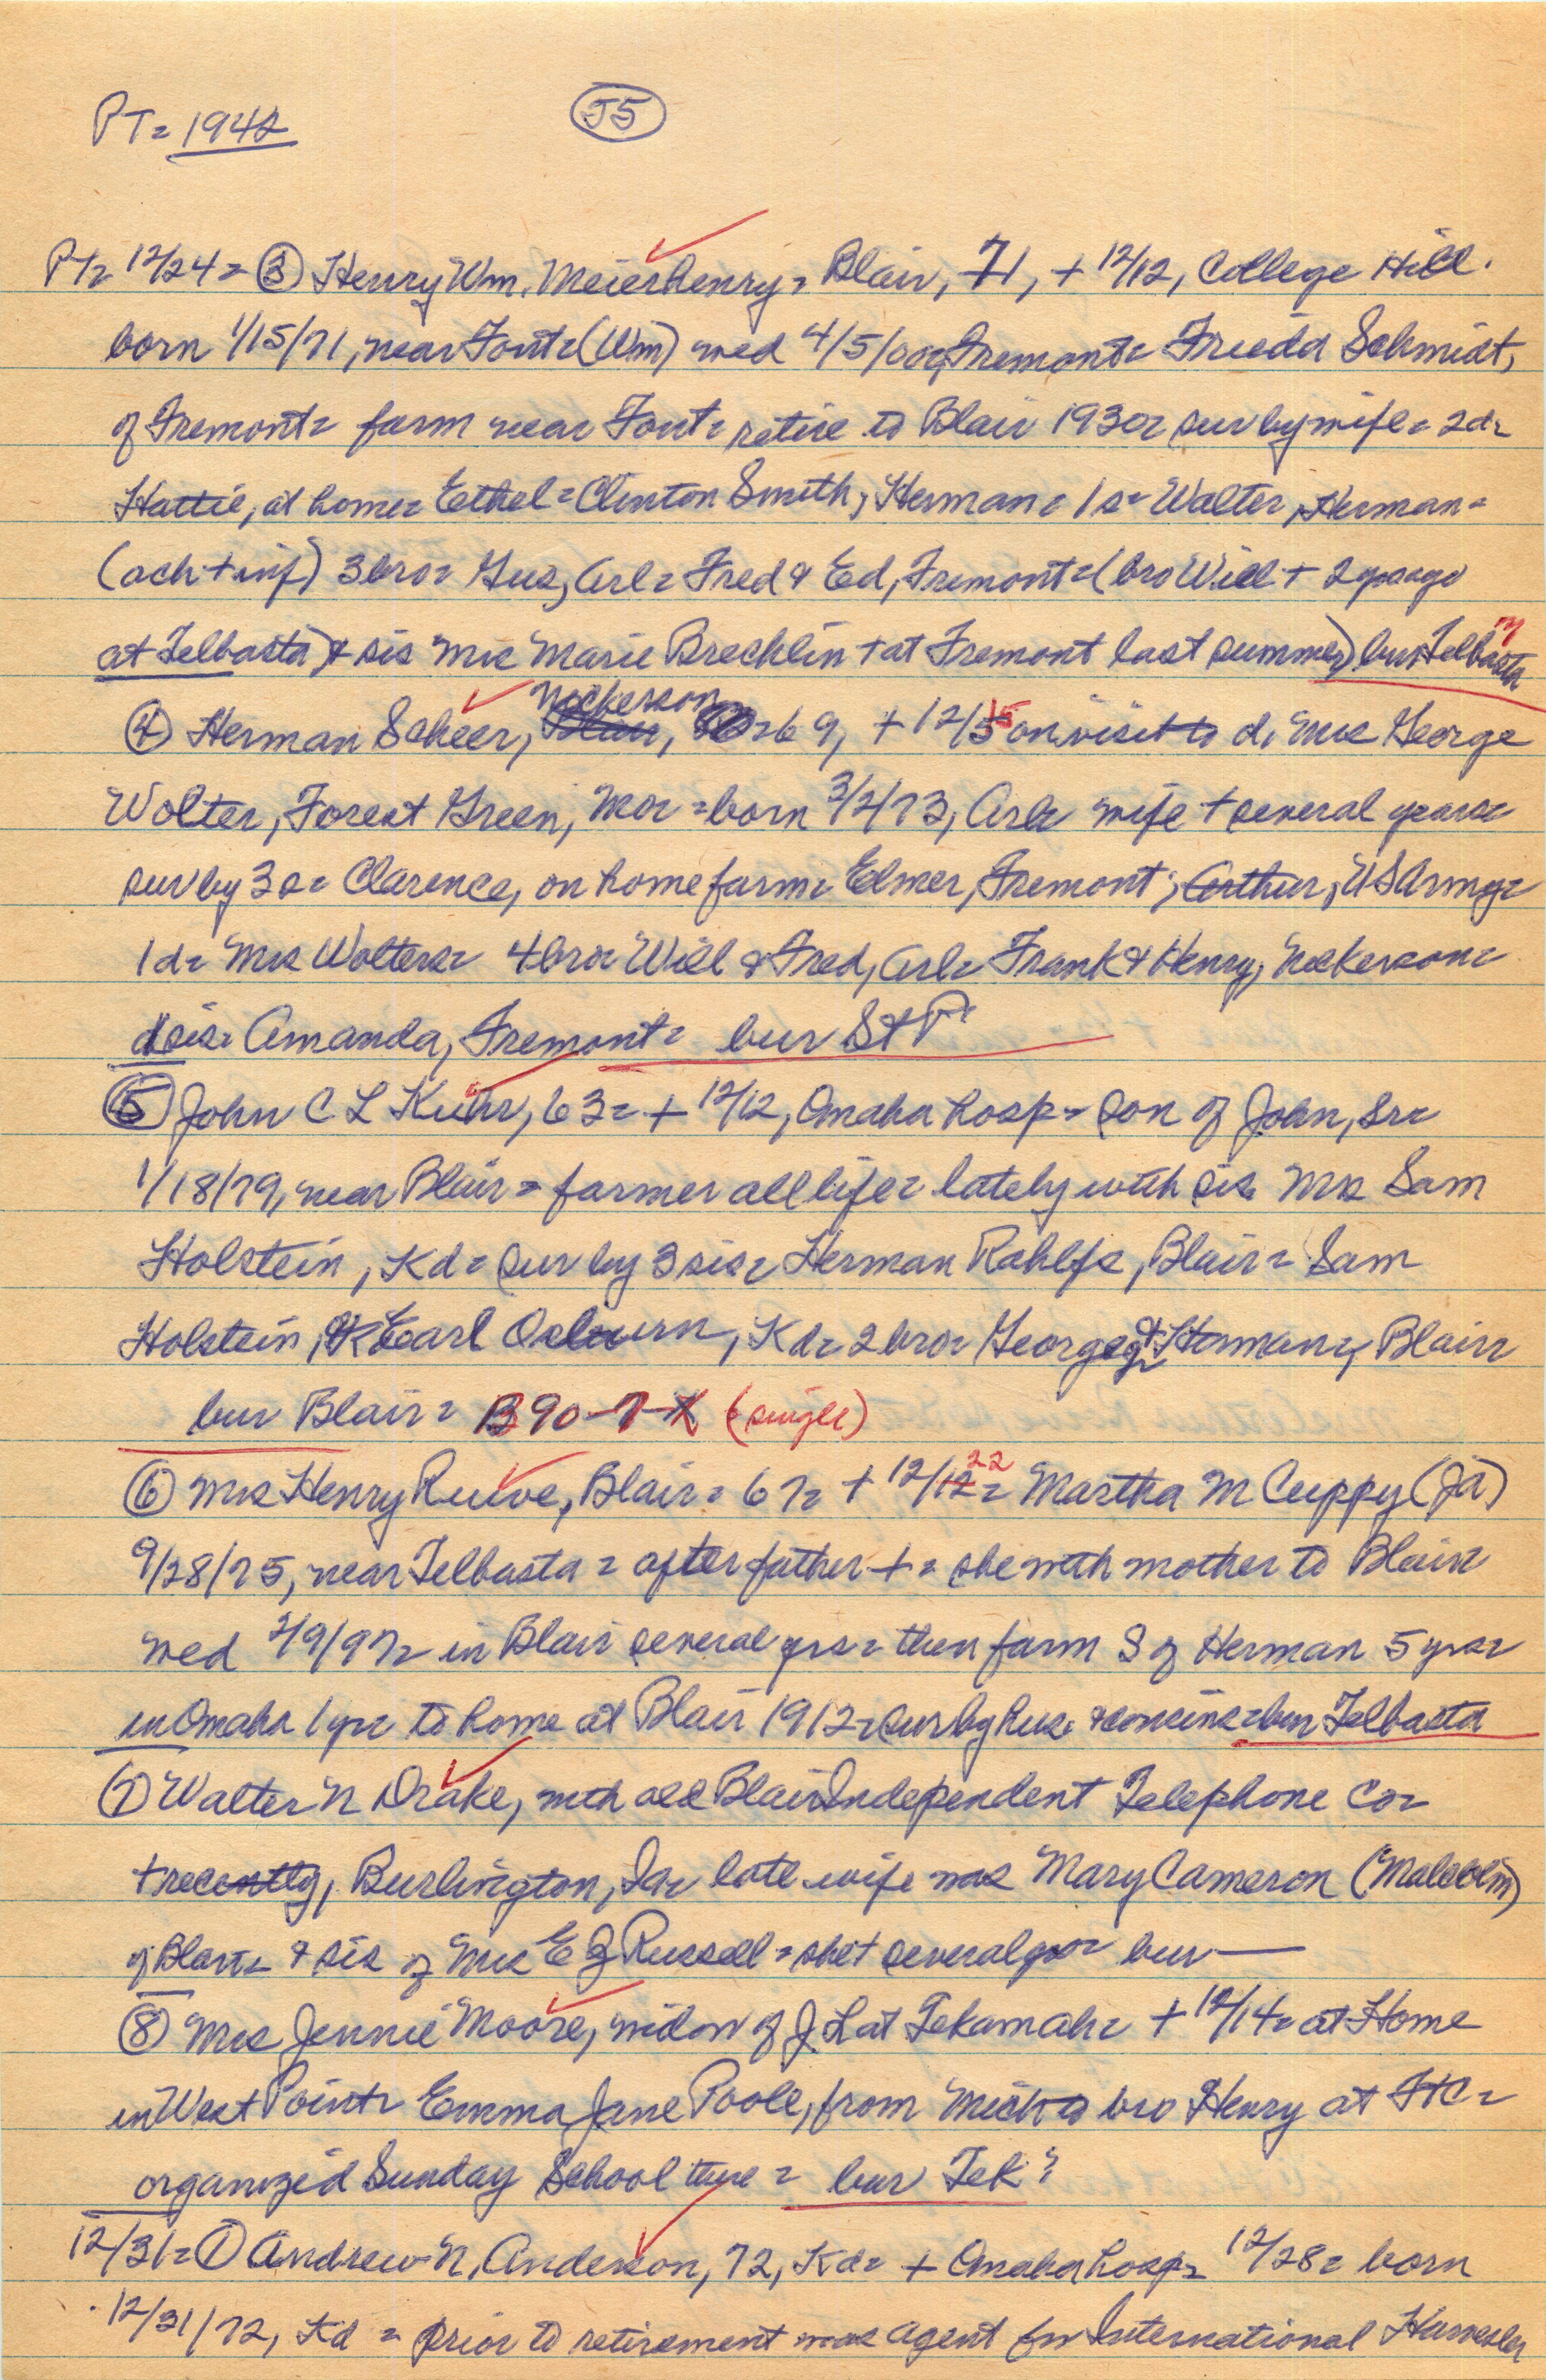 PT= 1942
J5
PT= 12/24= (3) Henry Wm. Meierhenry= Blair, 71, + 12/12, College Hill.
born 1/15/71, near Font= (Wm) wed 4/5/00, Fremont= Frieda Schmidt,
of Fremont= farm near Font= retire to Blair 1930= sur by wife= 2d=
Hattie, at home= Eethel= Clinton Smith, Herman= 1s= Walter, Herman=
(ach + inf) 3bro= Gus, Arl= Fred & Ed, Fremont= (bro Will + 2 yrs ago
at Telbasta) & sis Mrs Marie Brecklin + at Fremont last summer) bur Telbasta
(4) Herman Scheer, Nickerson, 69, + 12/15 on visit to d, Mrs George
Wolter, Forest Green, Mo= =born 3/2/73, Arl= wife + several years=
sur by 3s= Clarence, on home farm= Elmer, Fremont; Arthur, US Army=
1d= Mrs Wolters= 4bro= Will & Fred, Arl= Frank & Henry, Nickerson=
1sis= Amanda, Fremont= bur St P
(5) John C L Kuhr, 63= + 12/12, Omaha hosp= son of John, Sr=
1/18/79, near Blair= farmer all life= lately with sis Mrs Sam
Holstein, Kd= sur by 3 sis= Herman Rahlfs, Blair= Sam
Holstein, Earl Osburn, Kd= 2 bro= George & Herman, Blair=
bur Blair= B90-7-X (single)
(6) Mrs Henry Ruwe, Blair= 67= + 12/22= Martha M Cuppy (Ja)
9/28/75, near Telbasta= after father += she with mother to Blair=
wed 2/9/97= in Blair several yrs= then farm S of Herman 5 yrs=
in Omaha 1 yr= to home at Blair 1912= sur by hus. & cousins= bur Telbasta
(7) Walter N Drake, with old Blair Independent Telephone Co=
+ recently, Burlington, Ia= late wife was Mary Cameron (Malcolm)
of Blair= & sis of Mrs E Z Russell= she + several yrs= bur —
(8) Mrs Jennie Moore, widow of J L at Tekamah= + 12/14= at Home
in West Point= Emma Jane Poole, from Mich to bro Henry at FtC=
organized Sunday School there= bur Tek?
12/31= (1) Andrew N. Anderson, 72, Kd= + Omaha hosp= 12/28= born
12/31/72, Kd = prior to retirement was agent for International Harvester